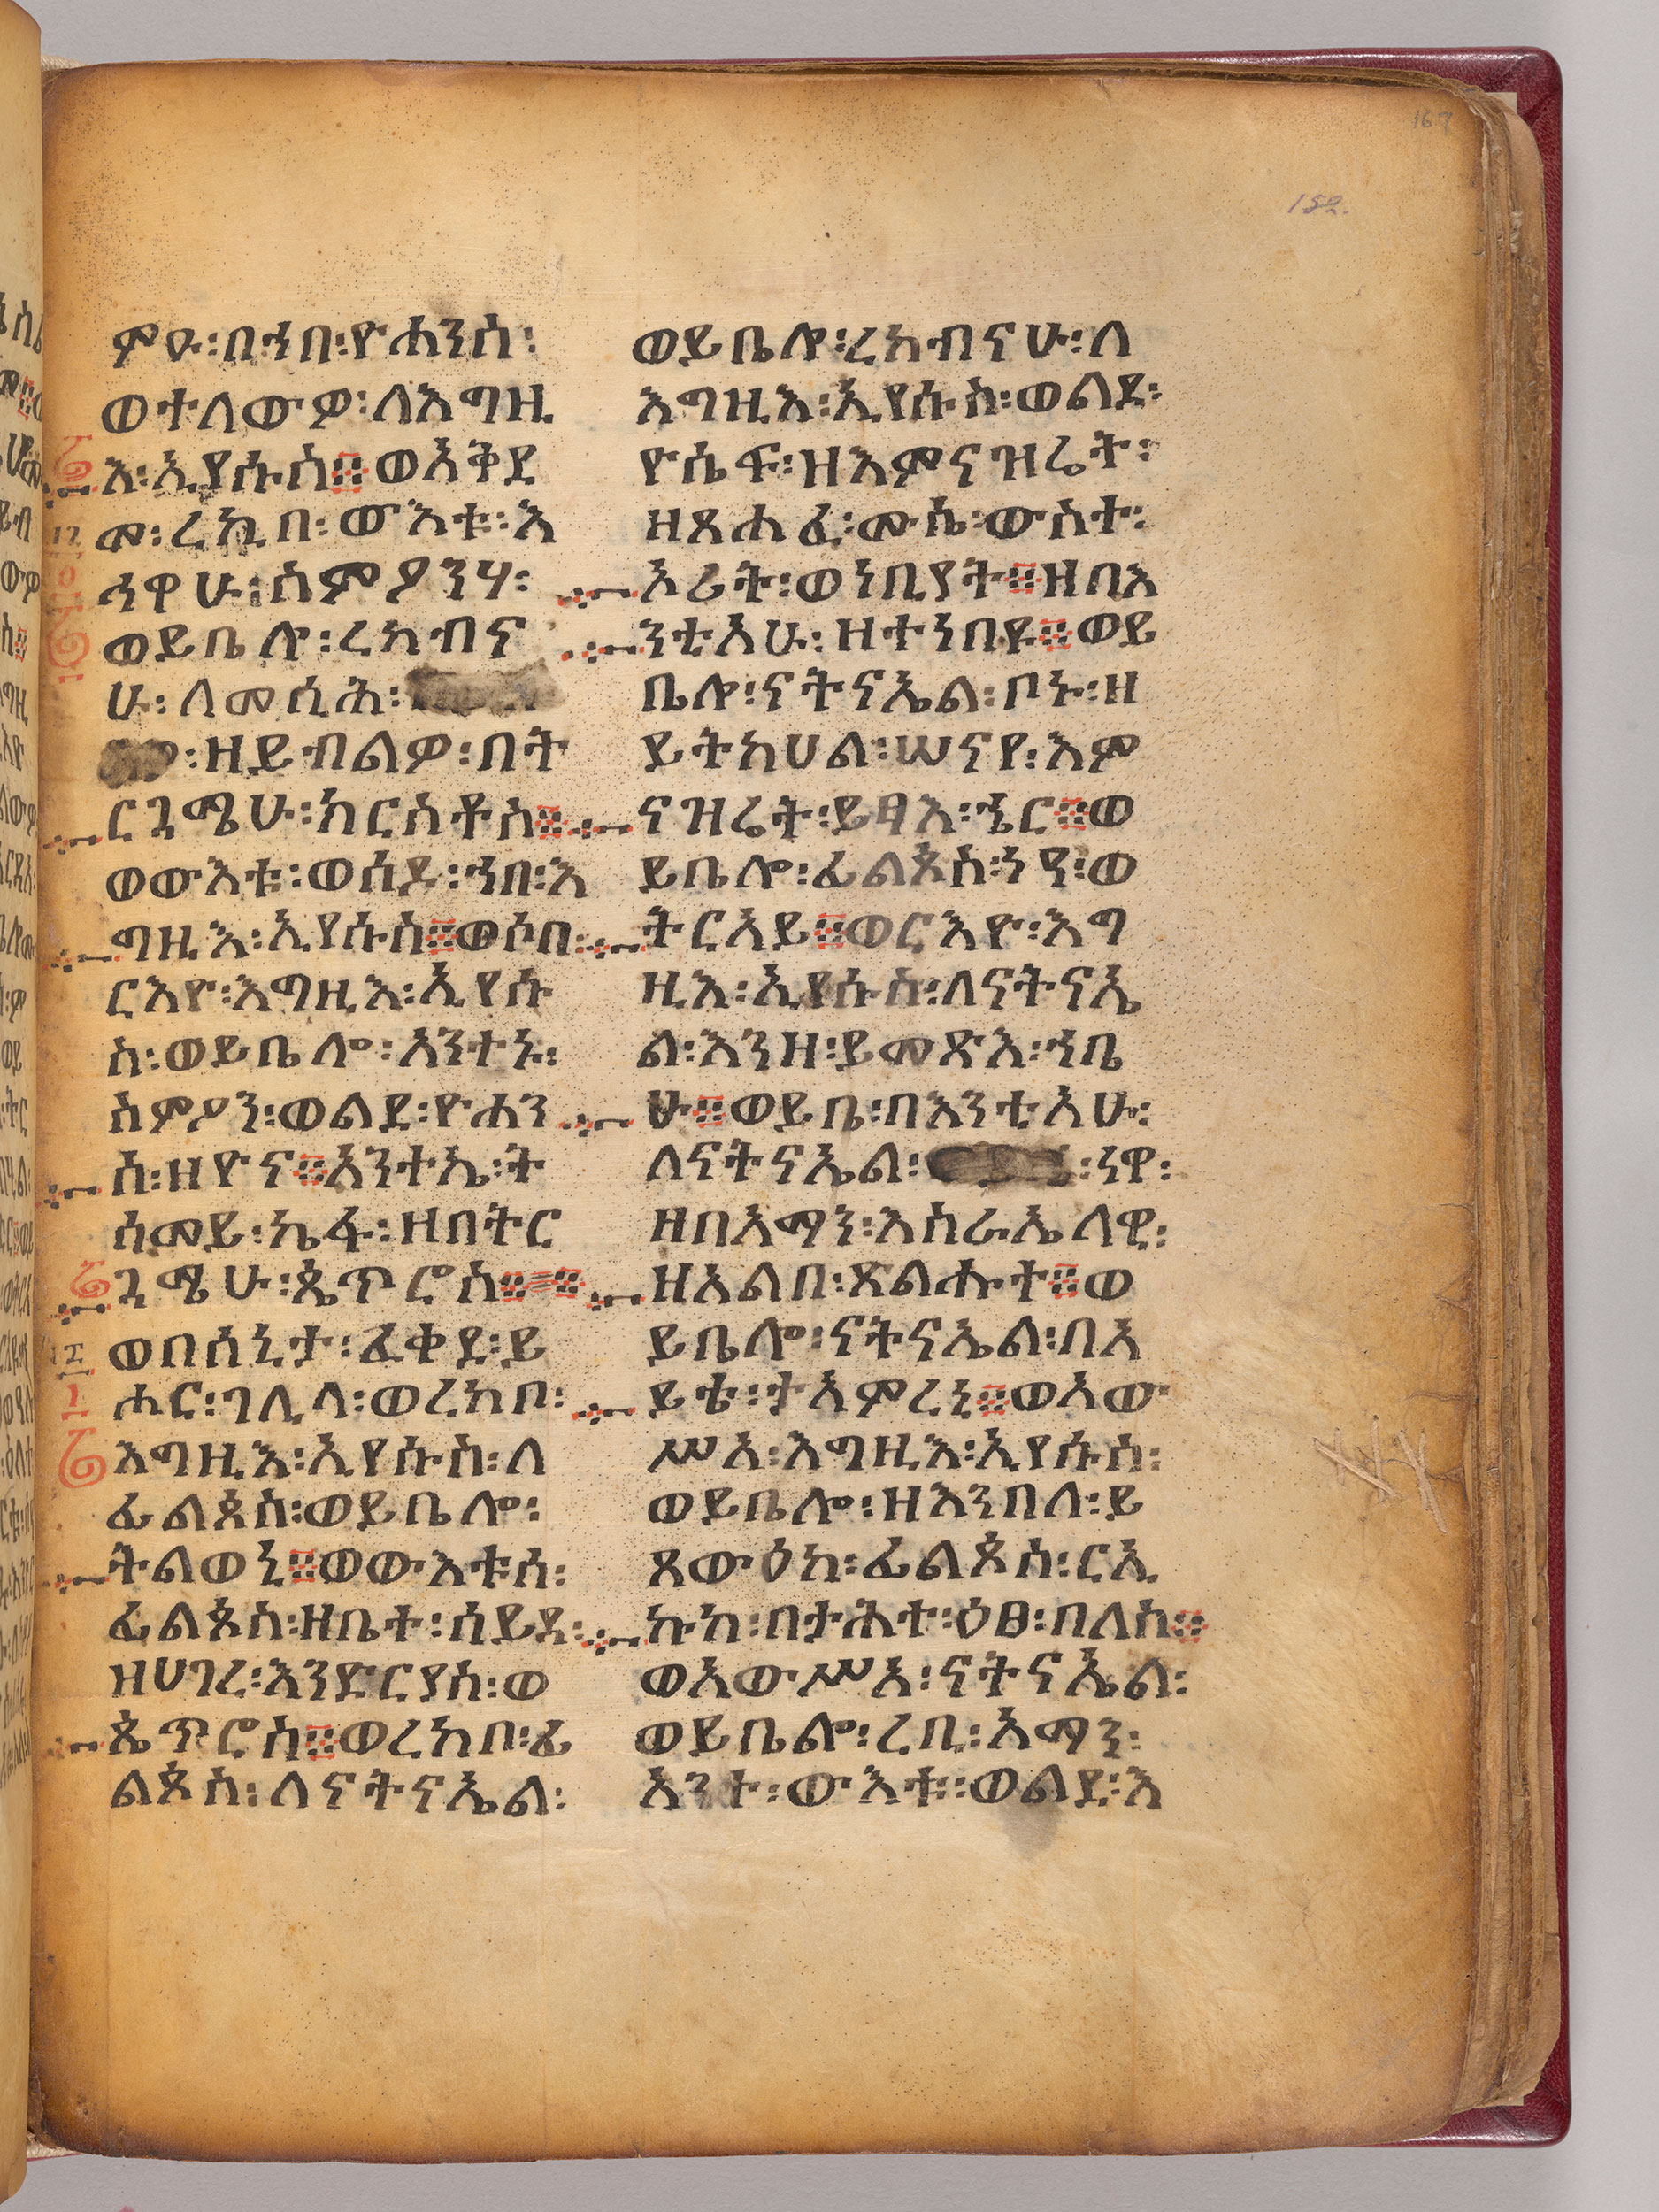 167
152.
ምዑ፡በኀበ፡ዮሐንስ፡
ወተለውዎ፡ለእግዚ
እ፡ኢየሱስ፨ወአቅደ
መ፡ረኪበ፡ውእቱ፡እ
ኅዋሁ፡ስምዖንሃ፡
ወይቤሎ፡ረከብናሁ
ሁ፡ለመሲሕ፡
፡ዘይብልዎ፡በት
ርጓሜሁ፡ክርስቶስ፨
ወውእቱ፡ወሰዶ፡ኀበ፡እ
ግዚእ፡ኢየሱስ፨ወሶበ፡
ርእዮ፡እግዚእ፡ኢየሱ
ስ፡ወይቤሎ፡አንተኑ፡
ስምዖን፡ወልደ፡ዮሐን
ስ፡ዘዮና፨አንተኤ፡ት
ሰመይ፡ኬፋ፡ዘበትር
ጓሜሁ፡ጴጥሮስ፨፨
ወበሰኒታ፡ፈቀደ፡ይ
ሖር፡ገሊላ፡ወረከቦ፡
እግዚእ፡ኢየሱስ፡ለ
ፊልጶስ፡ወይቤሎ፡
ትልወኒ፨ወውእቱሰ፡
ፊልጶስ፡ዘቤተ፡ሰይዳ፡
ዝሀገረ፡እንድርያስ፡ወ
ጴጥሮስ፨ወረከቦ፡ፊ
ልጶስ፡ለናትናኤል፡
ወይቤሎ፡ረከብናሁ፡ለ
እግዚእ፡ኢየሱስ፡ወልደ፡
ዮሴፍ፡ዘእምናዝሬት፡
ዘጸሐፈ፡ሙሴ፡ውስተ፡
ኦሪት፡ወነቢያት፨ዘበእ
ንቲአሁ፡ዘተነበዩ፨ወይ
ቤሎ፡ናትናኤል፡ቦኑ፡ዘ
ይትከሀል፡ሠናየ፡እም
ናዝሬት፡ይፃእ፡ኄር፨ወ
ይቤሎ፡ፊልጶስ፡ነዓ፡ወ
ትርአይ፨ወርእዮ፡እግ
ዚእ፡ኢየሱስ፡ለናትናኤ
ል፡እንዘ፡ይመጽእ፡ኀቤ
ሁ፨ወይቤ፡በእንቲአሁ፡
ለናትናኤል፡ ፡ነዋ፡
ዘበአማን፡እስራኤላዊ፡
ዘአልበ፡ጽልሑት፨ወ
ይቤሎ፡ናትናኤል፡በአ
ይቴ፡ታአምረኒ፨ወአው
ሥአ፡እግዚእ፡ኢየሱስ፡
ወይቤሎ፡ዘእንበለ፡ይ
ጸውዕከ፡ፊልጶስ፡ርኢ
ኩከ፡በታሕተ፡ዕፀ፡በለስ፨
ወአውሥአ፡ናትናኤል፡
ወይቤሎ፡ረቢ፡አማን፡
አንተ፡ውእቱ፡ወልደ፡እ